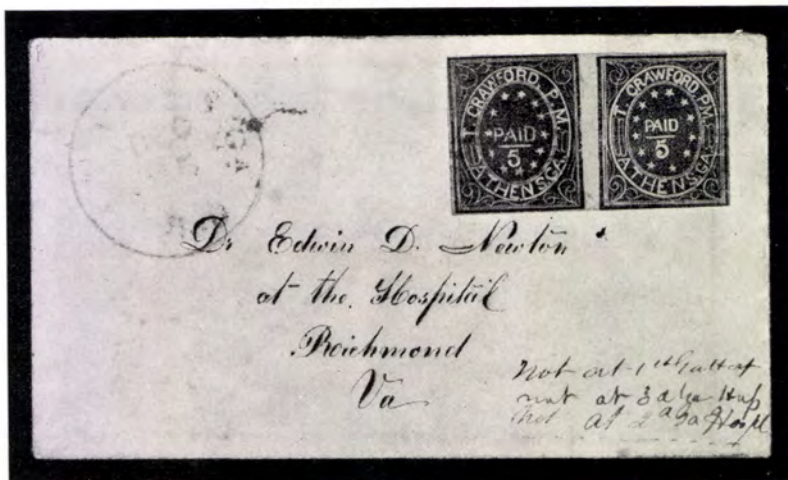 GA
T. CRAWFORD, P.M.
PAID
5
ATHENS, GA.
T. CRAWFORD, P.M.
PAID
5
ATHENS, GA.
Dr Edwin D. Newton
at the Hospital
Richmond
Va
Not at 1st
not at 3d Ga Hosp
Not at 2d Ga Hospl